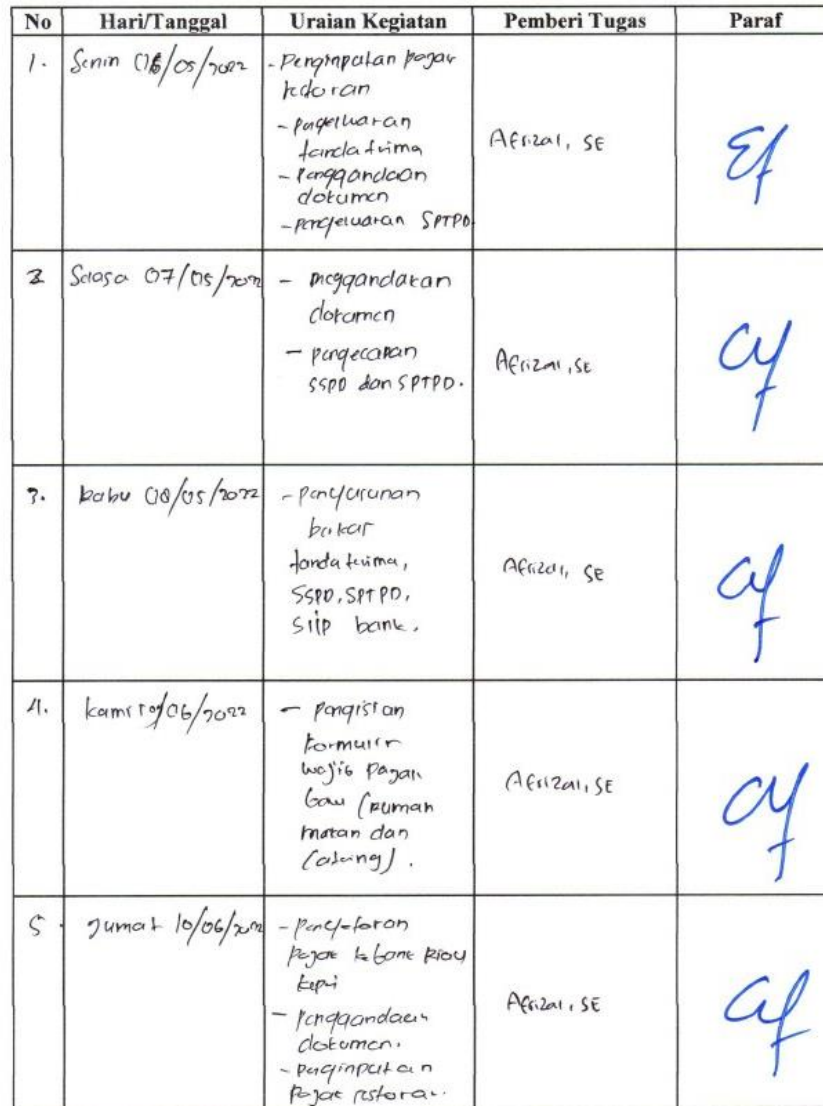 No Hari/Tanggal Uraian Kegiatan Pemberi Tugas Paraf
1. Senin 06/05/2022 - Penginputan pajak
restoran
- pengeluaran
tanda trima
- Penggandaan
dokumen
- pengeluaran SPTPD.
Afrizal, SE
2 Selasa 07/05/2022 - menggandakan
dokumen
- pengecapan
SSPD dan SPTPD.
Afrizal, SE
3. Rabu 08/05/2022 - penyusunan
tanda terima,
SSPD, SPTPD,
Slip bank.
Afrizal, SE
4. Kamis 09/06/2022 - pengisian
formulir
wajib pajak
baru (rumah
makan dan
Catering).
Afrizal, SE
5. Jumat 10/06/2022 - penyetoran
pajak ke bank Riau
kepri
- penggandaan
dokumen.
- penginputan
pajak restoran.
Afrizal, SE